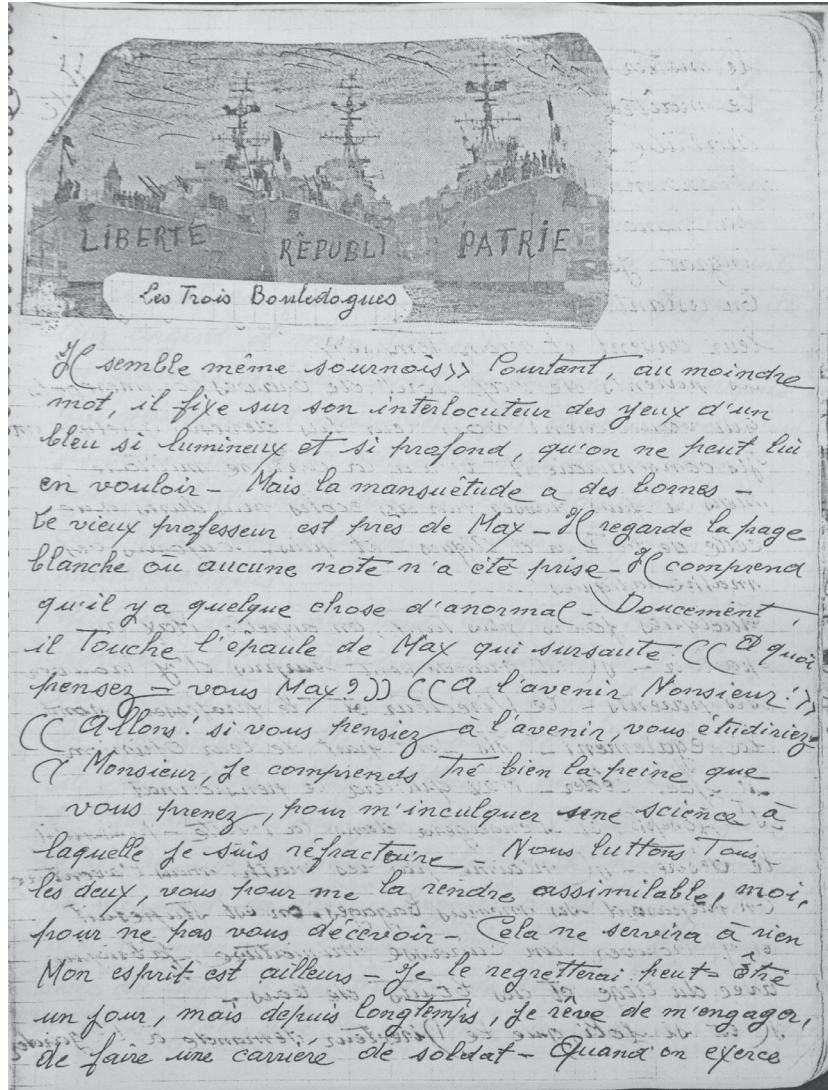 LIBERTÉ RÉPUBLI PATRIE
Les Trois Bouledogues
Il semble même sournois>> Pourtant, au moindre
mot, il fixe sur son interlocuteur des yeux d'un
bleu si lumineux et si profond, qu'on ne peut lui
en vouloir - Mais la mansuétude a des bornes -
Le vieux professeur est près de Max - Il regarde la page
blanche où aucune note n'a été prise - Il comprend
qu'il y a quelque chose d'anormal - Doucement
il touche l'épaule de Max qui sursaute ((A quoi
pensez-vous Max?)) ((A l'avenir Monsieur!>>
((Allons! si vous pensiez à l'avenir, vous étudiriez
(( Monsieur, Je comprends tré bien la peine que
vous prenez, pour m'inculquer une science à
laquelle je suis réfractaire - Nous luttons Tous
les deux, vous pour me la rendre assimilable, moi,
pour ne pas vous décevoir - Cela ne servira à rien
Mon esprit est ailleurs - Je le regretterai peut=être
un jour, mais depuis longtemps, je rêve de m'engager,
de faire une carrière de soldat - Quand on exerce